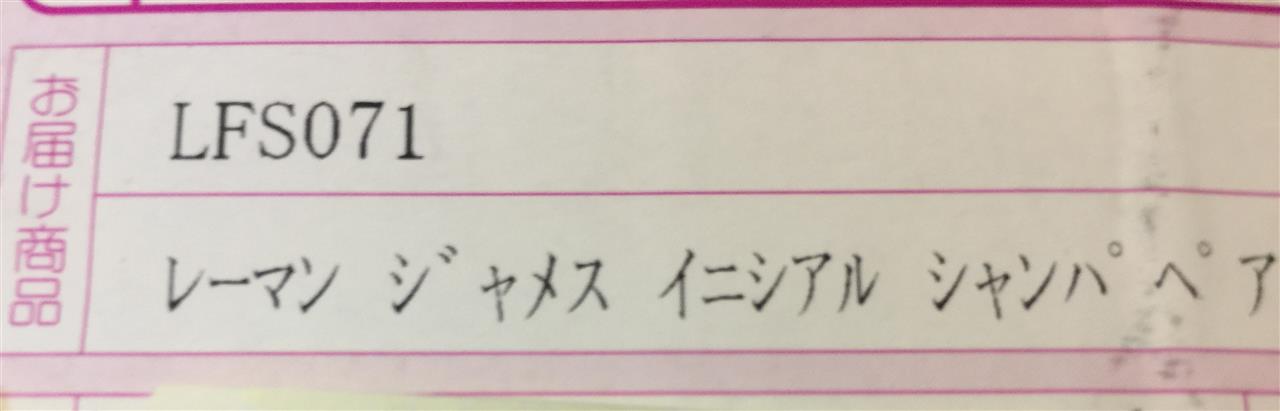 お届け商品
LFS071
レーマン ジャメス イニシアル シャンパ ペア